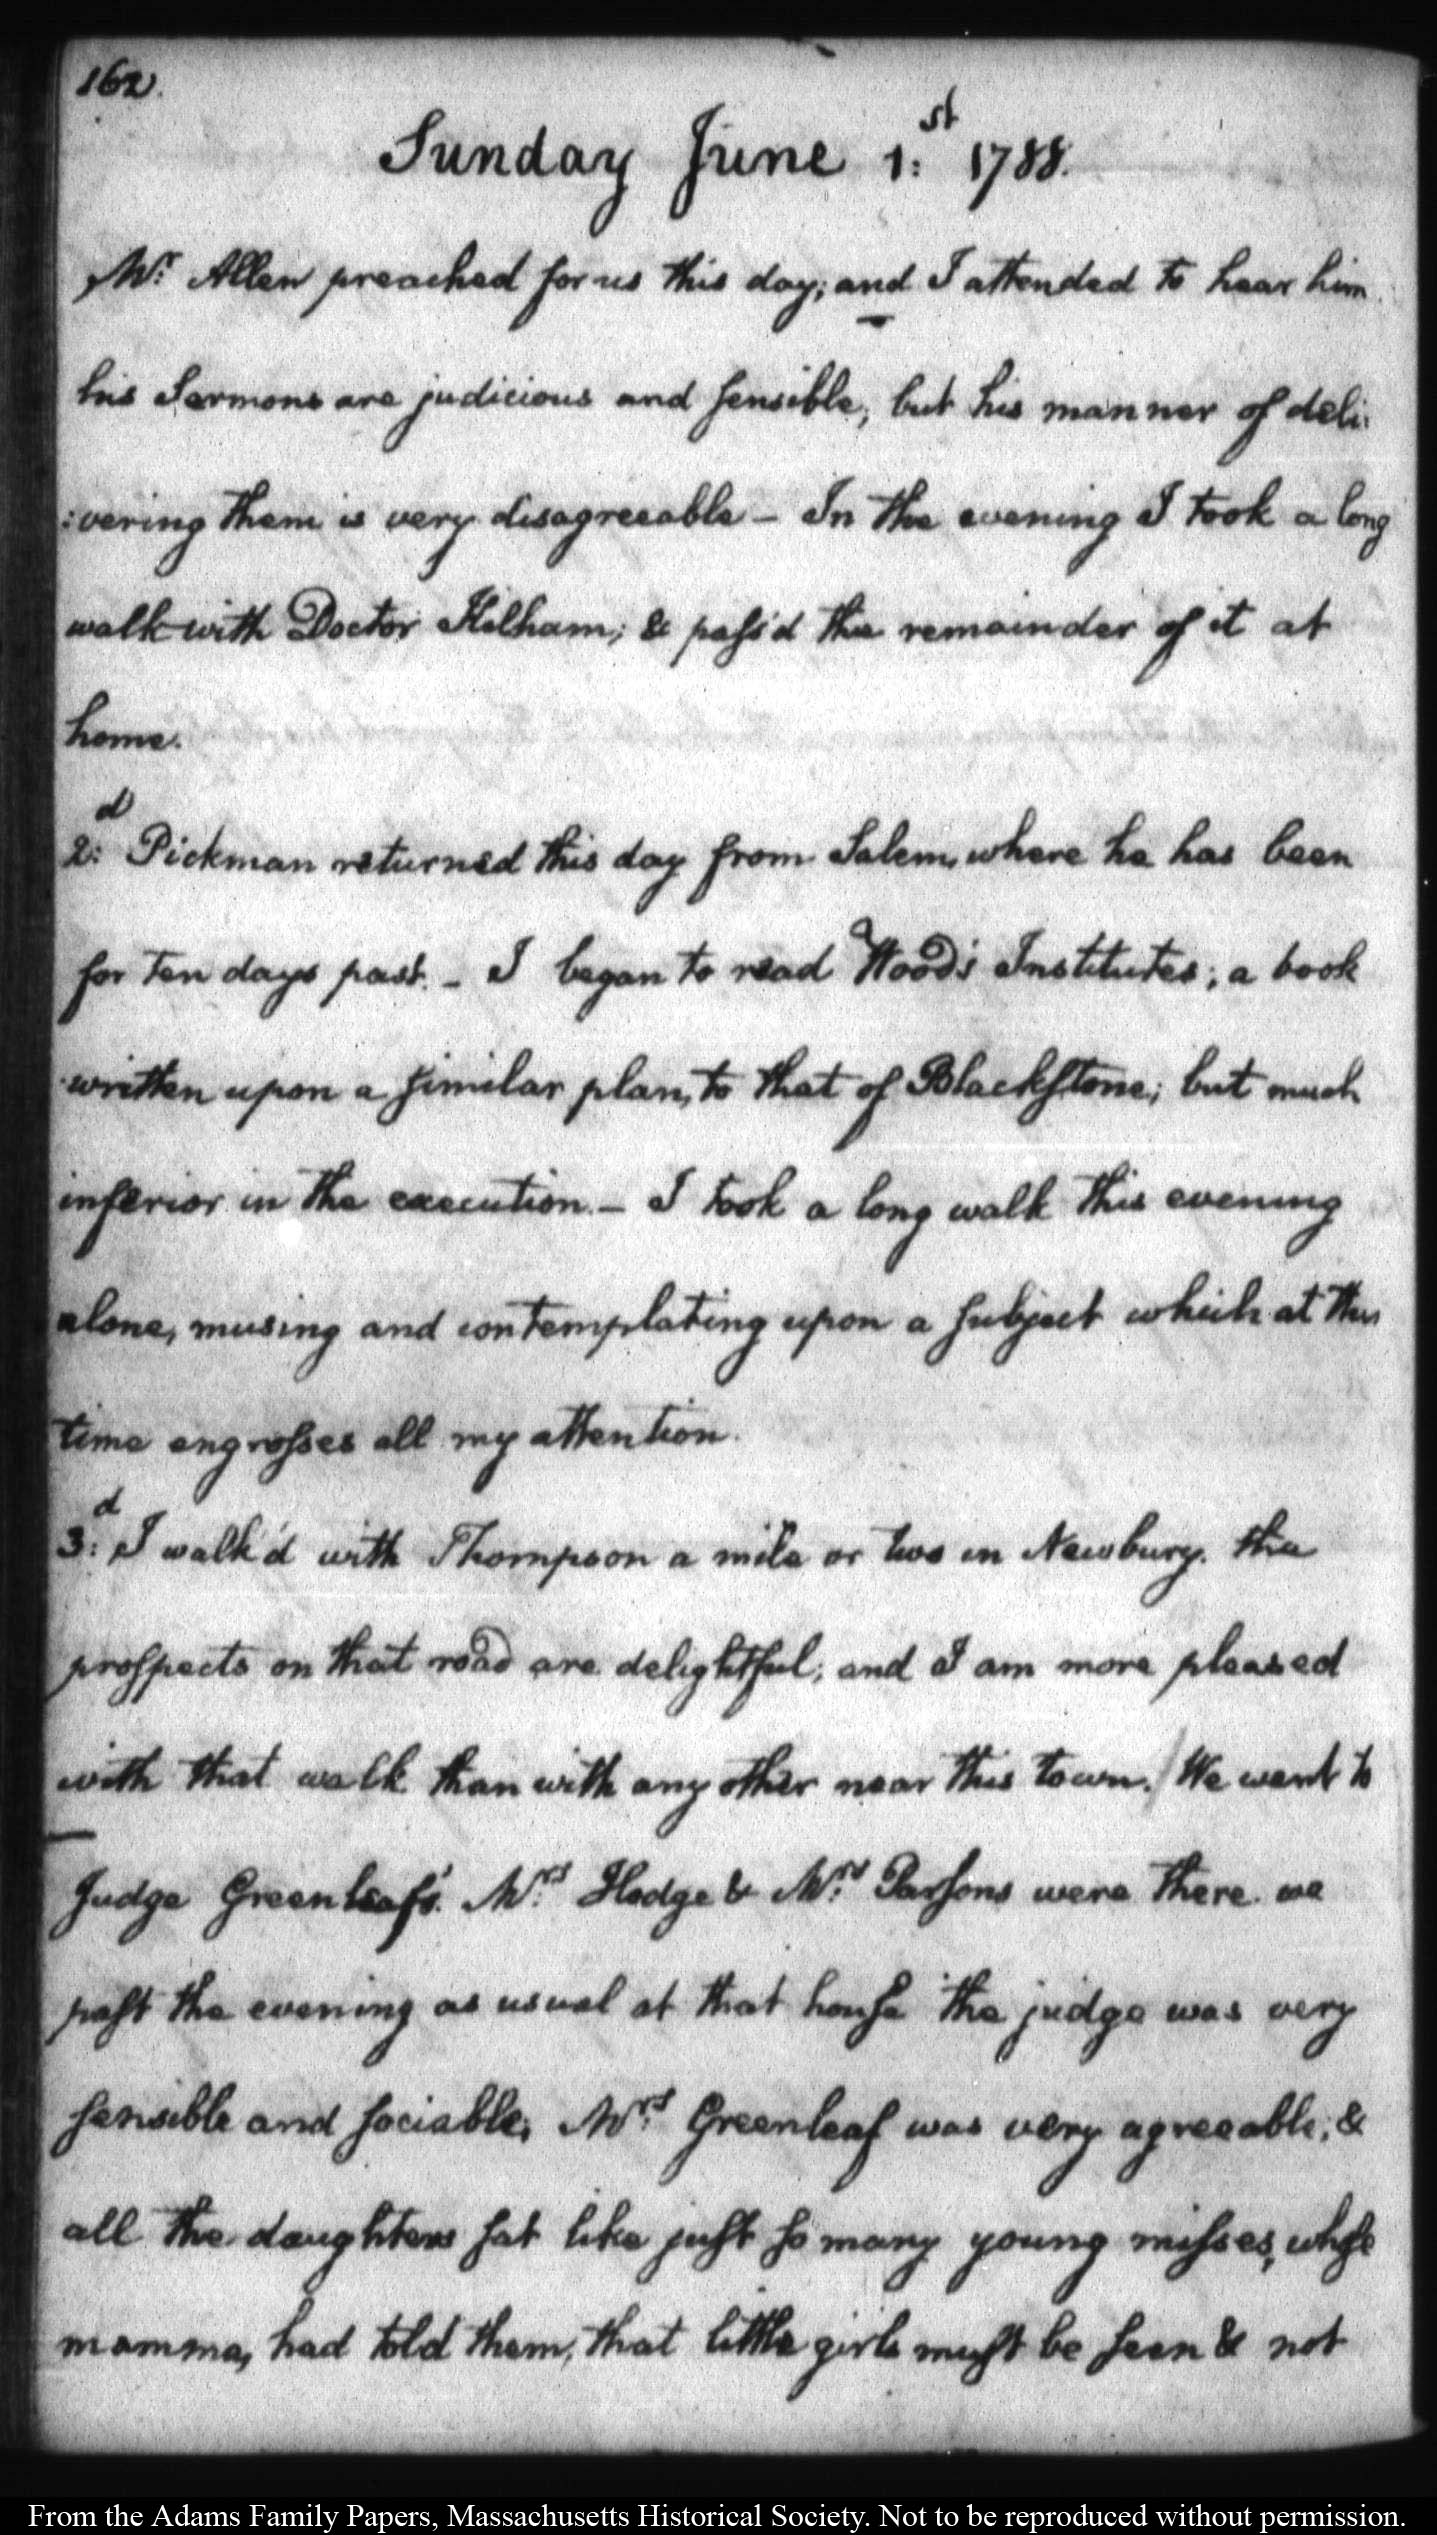 162.
Sunday June 1:st 1788.
Mr. Allen preached for us this day; and I attended to hear him
his Sermons are judicious and sensible, but his manner of deli:
:vering them is very disagreeable — In the evening I took a long
walk with Doctor Kilham; & pass'd the remainder of it at
home.
2:d Pickman returned this day from Salem, where he has been
for ten days past. — I began to read Wood's Institutes; a book
written upon a similar plan, to that of Blackstone; but much
inferior in the execution. — I took a long walk this evening
alone, musing and contemplating upon a subject which at this
time engrosses all my attention.
3:d I walk'd with Thompson a mile or two in Newbury. the
prospects on that road are delightful; and I am more pleased
with that walk than with any other near this town. / We went to
Judge Greenleaf's. Mrs. Hodge & Mrs. Parsons were there. we
past the evening as usual at that house the judge was very
sensible and sociable; Mrs. Greenleaf was very agreeable; &
all the daughters sat like just so many young misses, whose
mamma, had told them, that little girls must be seen & not
From the Adams Family Papers, Massachusetts Historical Society. Not to be reproduced without permission.